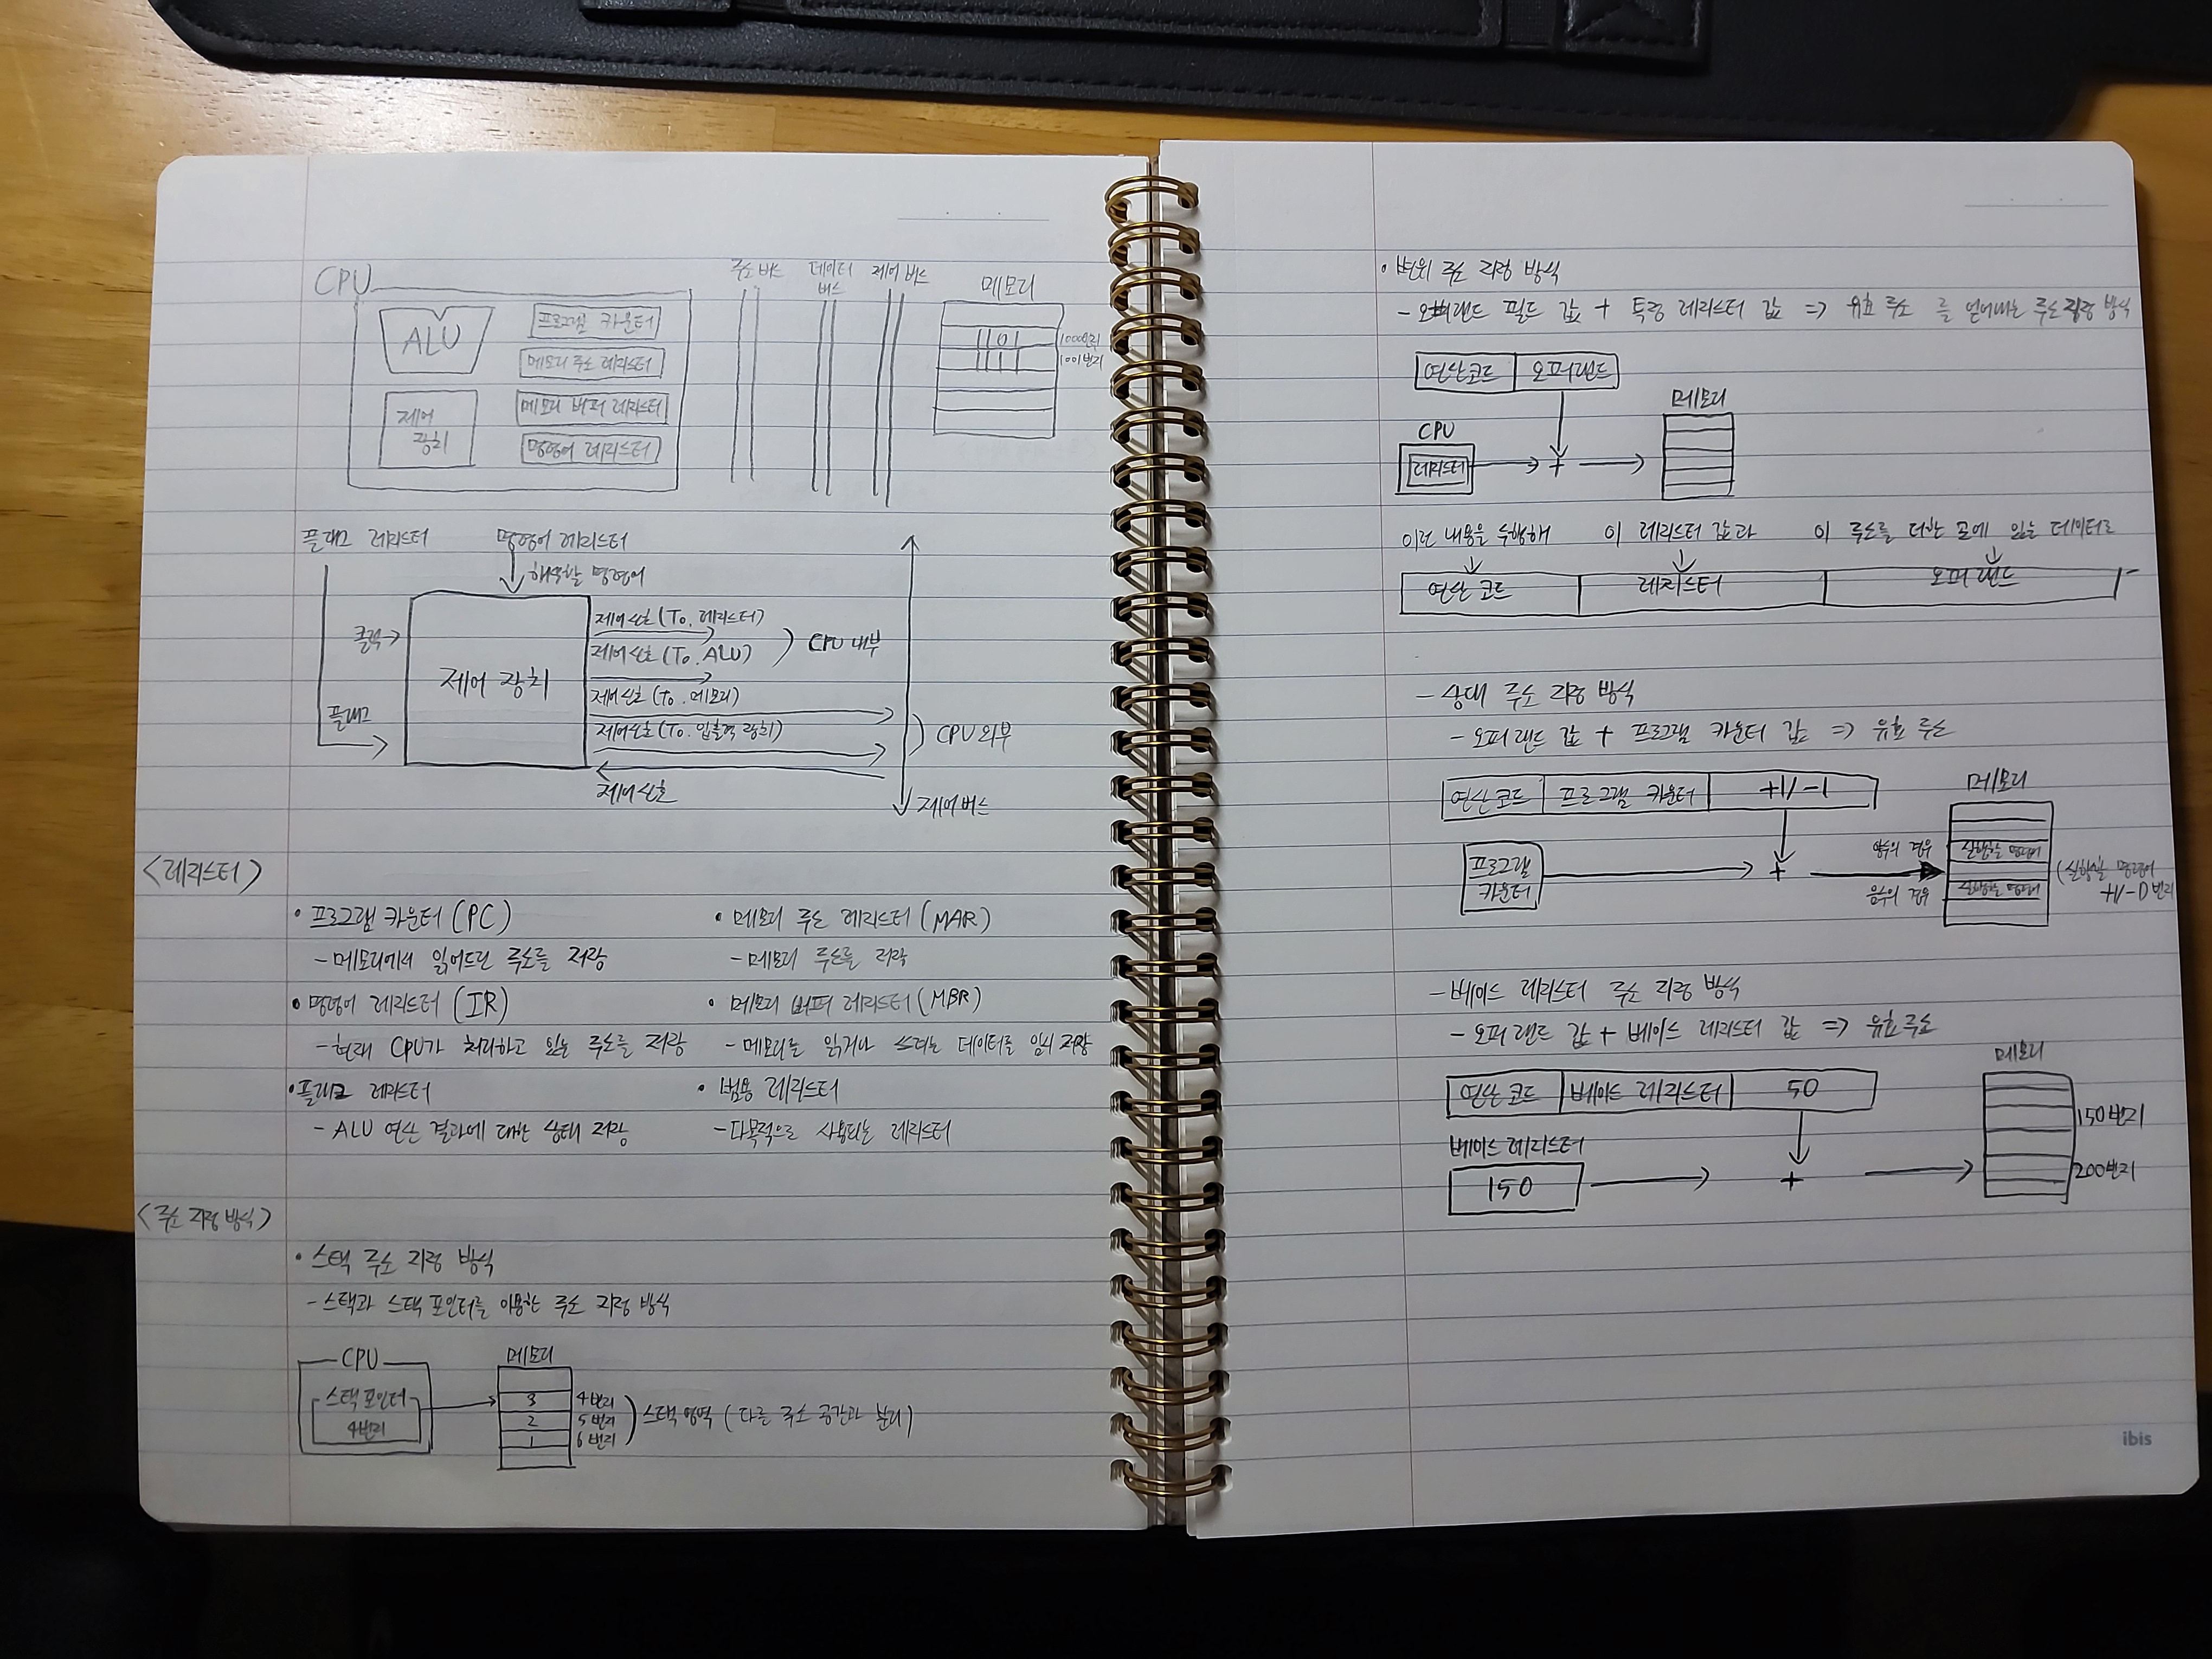 CPU
ALU
프로그램 카운터
메모리 주소 레지스터
제어
장치
메모리 버퍼 레지스터
명령어 레지스터
주소 버스
데이터
버스
제어 버스
메모리
1101
1111
1000번지
1001번지
플래그 레지스터
명령어 레지스터
해석할 명령어
클럭
플래그
제어 장치
제어신호 (To. 레지스터)
제어신호 (To. ALU)
CPU 내부
제어신호 (To. 메모리)
제어신호 (To. 입출력 장치)
CPU 외부
제어신호
제어버스
<레지스터>
• 프로그램 카운터 (PC)
- 메모리에서 읽어드린 주소를 저장
• 메모리 주소 레지스터 (MAR)
- 메모리 주소를 저장
• 명령어 레지스터 (IR)
- 현재 CPU가 처리하고 있는 주소를 저장
• 메모리 버퍼 레지스터 (MBR)
- 메모리는 읽거나 쓰려는 데이터를 임시 저장
• 플래그 레지스터
- ALU 연산 결과에 대한 상태 저장
• 범용 레지스터
- 다목적으로 사용되는 레지스터
<주소 지정 방식>
• 스택 주소 지정 방식
- 스택과 스택 포인터를 이용한 주소 지정 방식
CPU
스택 포인터
4번지
메모리
3 4번지
2 5번지
1 6번지
스택 영역 (다른 주소 공간과 분리)
• 변위 주소 지정 방식
- 오퍼랜드 필드 값 + 특정 레지스터 값 => 유효 주소 를 얻어내는 주소 지정 방식
연산코드 오퍼랜드
CPU
레지스터
+
메모리
이런 내용을 수행해 이 레지스터 값과 이 주소를 더한 곳에 있는 데이터로
연산 코드 레지스터 오퍼랜드
- 상대 주소 지정 방식
- 오퍼랜드 값 + 프로그램 카운터 값 => 유효 주소
연산코드 프로그램 카운터 +1/-1
메모리
프로그램
카운터
+
양수의 경우
음수의 경우
실행할 명령어
실행할 명령어
(실행할 명령어
+1/-1) 번지
- 베이스 레지스터 주소 지정 방식
- 오퍼랜드 값 + 베이스 레지스터 값 => 유효 주소
연산 코드 베이스 레지스터 50
베이스 레지스터
150
+
메모리
150번지
200번지
ibis